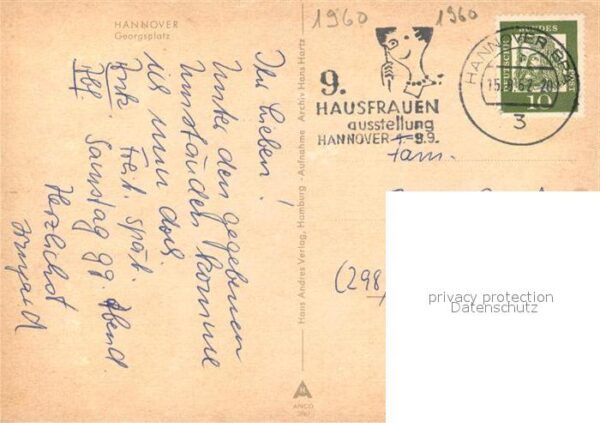 HANNOVER
Georgsplatz
1960
1960
9.
HAUSFRAUEN
ausstellung
HANNOVER 1.-9.9.
HANNOVER
3
DEUTSCHE BUNDESPOST
10
Fam.
(298
Ihr Lieben!
Unter den gegebenen
Umständen komme
ich nun doch
Freit. spät.
Samstag gg. Abend.
Herzlichst
Irmgard
Hans Andres Verlag, Hamburg - Aufnahme Archiv Hans Hartz
ANCO
privacy protection
Datenschutz